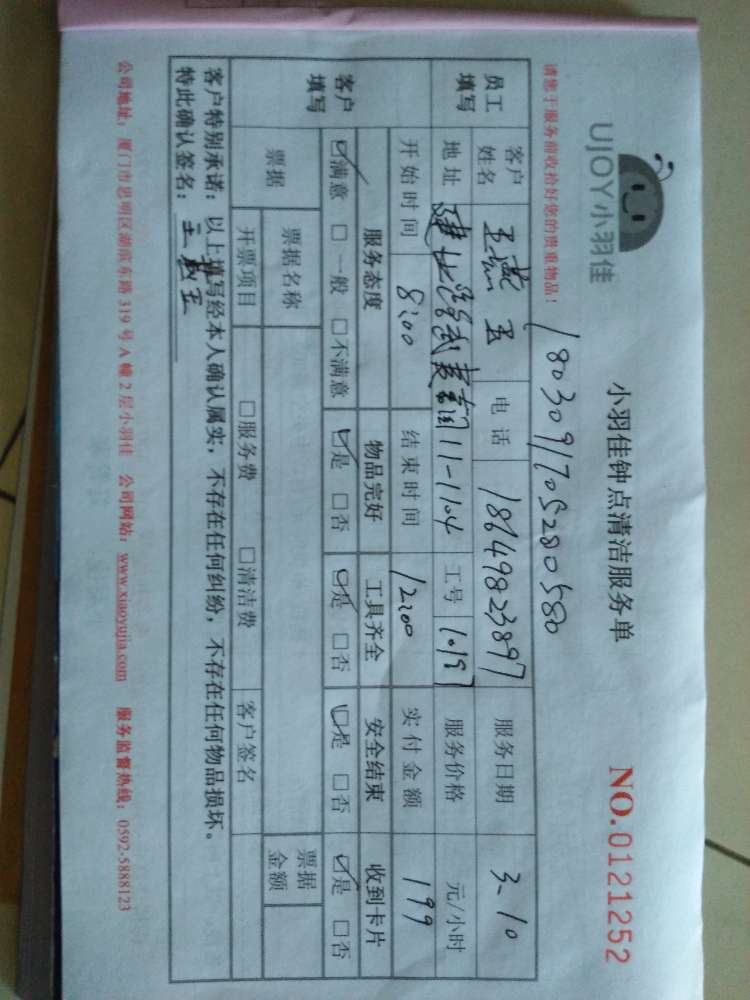 UJOY小羽佳
小羽佳钟点清洁服务单
NO.0121252
请您于服务前收拾好您的贵重物品!
180309170528058​0
员工填写
客户姓名 王燕玉 电话 18649823897 服务日期 3-10
地址 11-1104 工号 1019 服务价格 元/小时
开始时间 8:00 结束时间 12:00 实付金额 199
客户填写
服务态度 物品完好 工具齐全 安全结束 收到卡片
☑满意 □一般 □不满意 ☑是 □否 ☑是 □否 ☑是 □否 ☑是 □否
票据 票据名称 票据金额
开票项目 □服务费 □清洁费 客户签名
客户特别承诺：以上填写经本人确认属实，不存在任何纠纷，不存在任何物品损坏。
特此确认签名：王燕玉
公司地址：厦门市思明区湖滨东路 319 号 A 幢 2 层小羽佳 公司网站：www.xiaoyujia.com 服务监督热线：0592-5888123